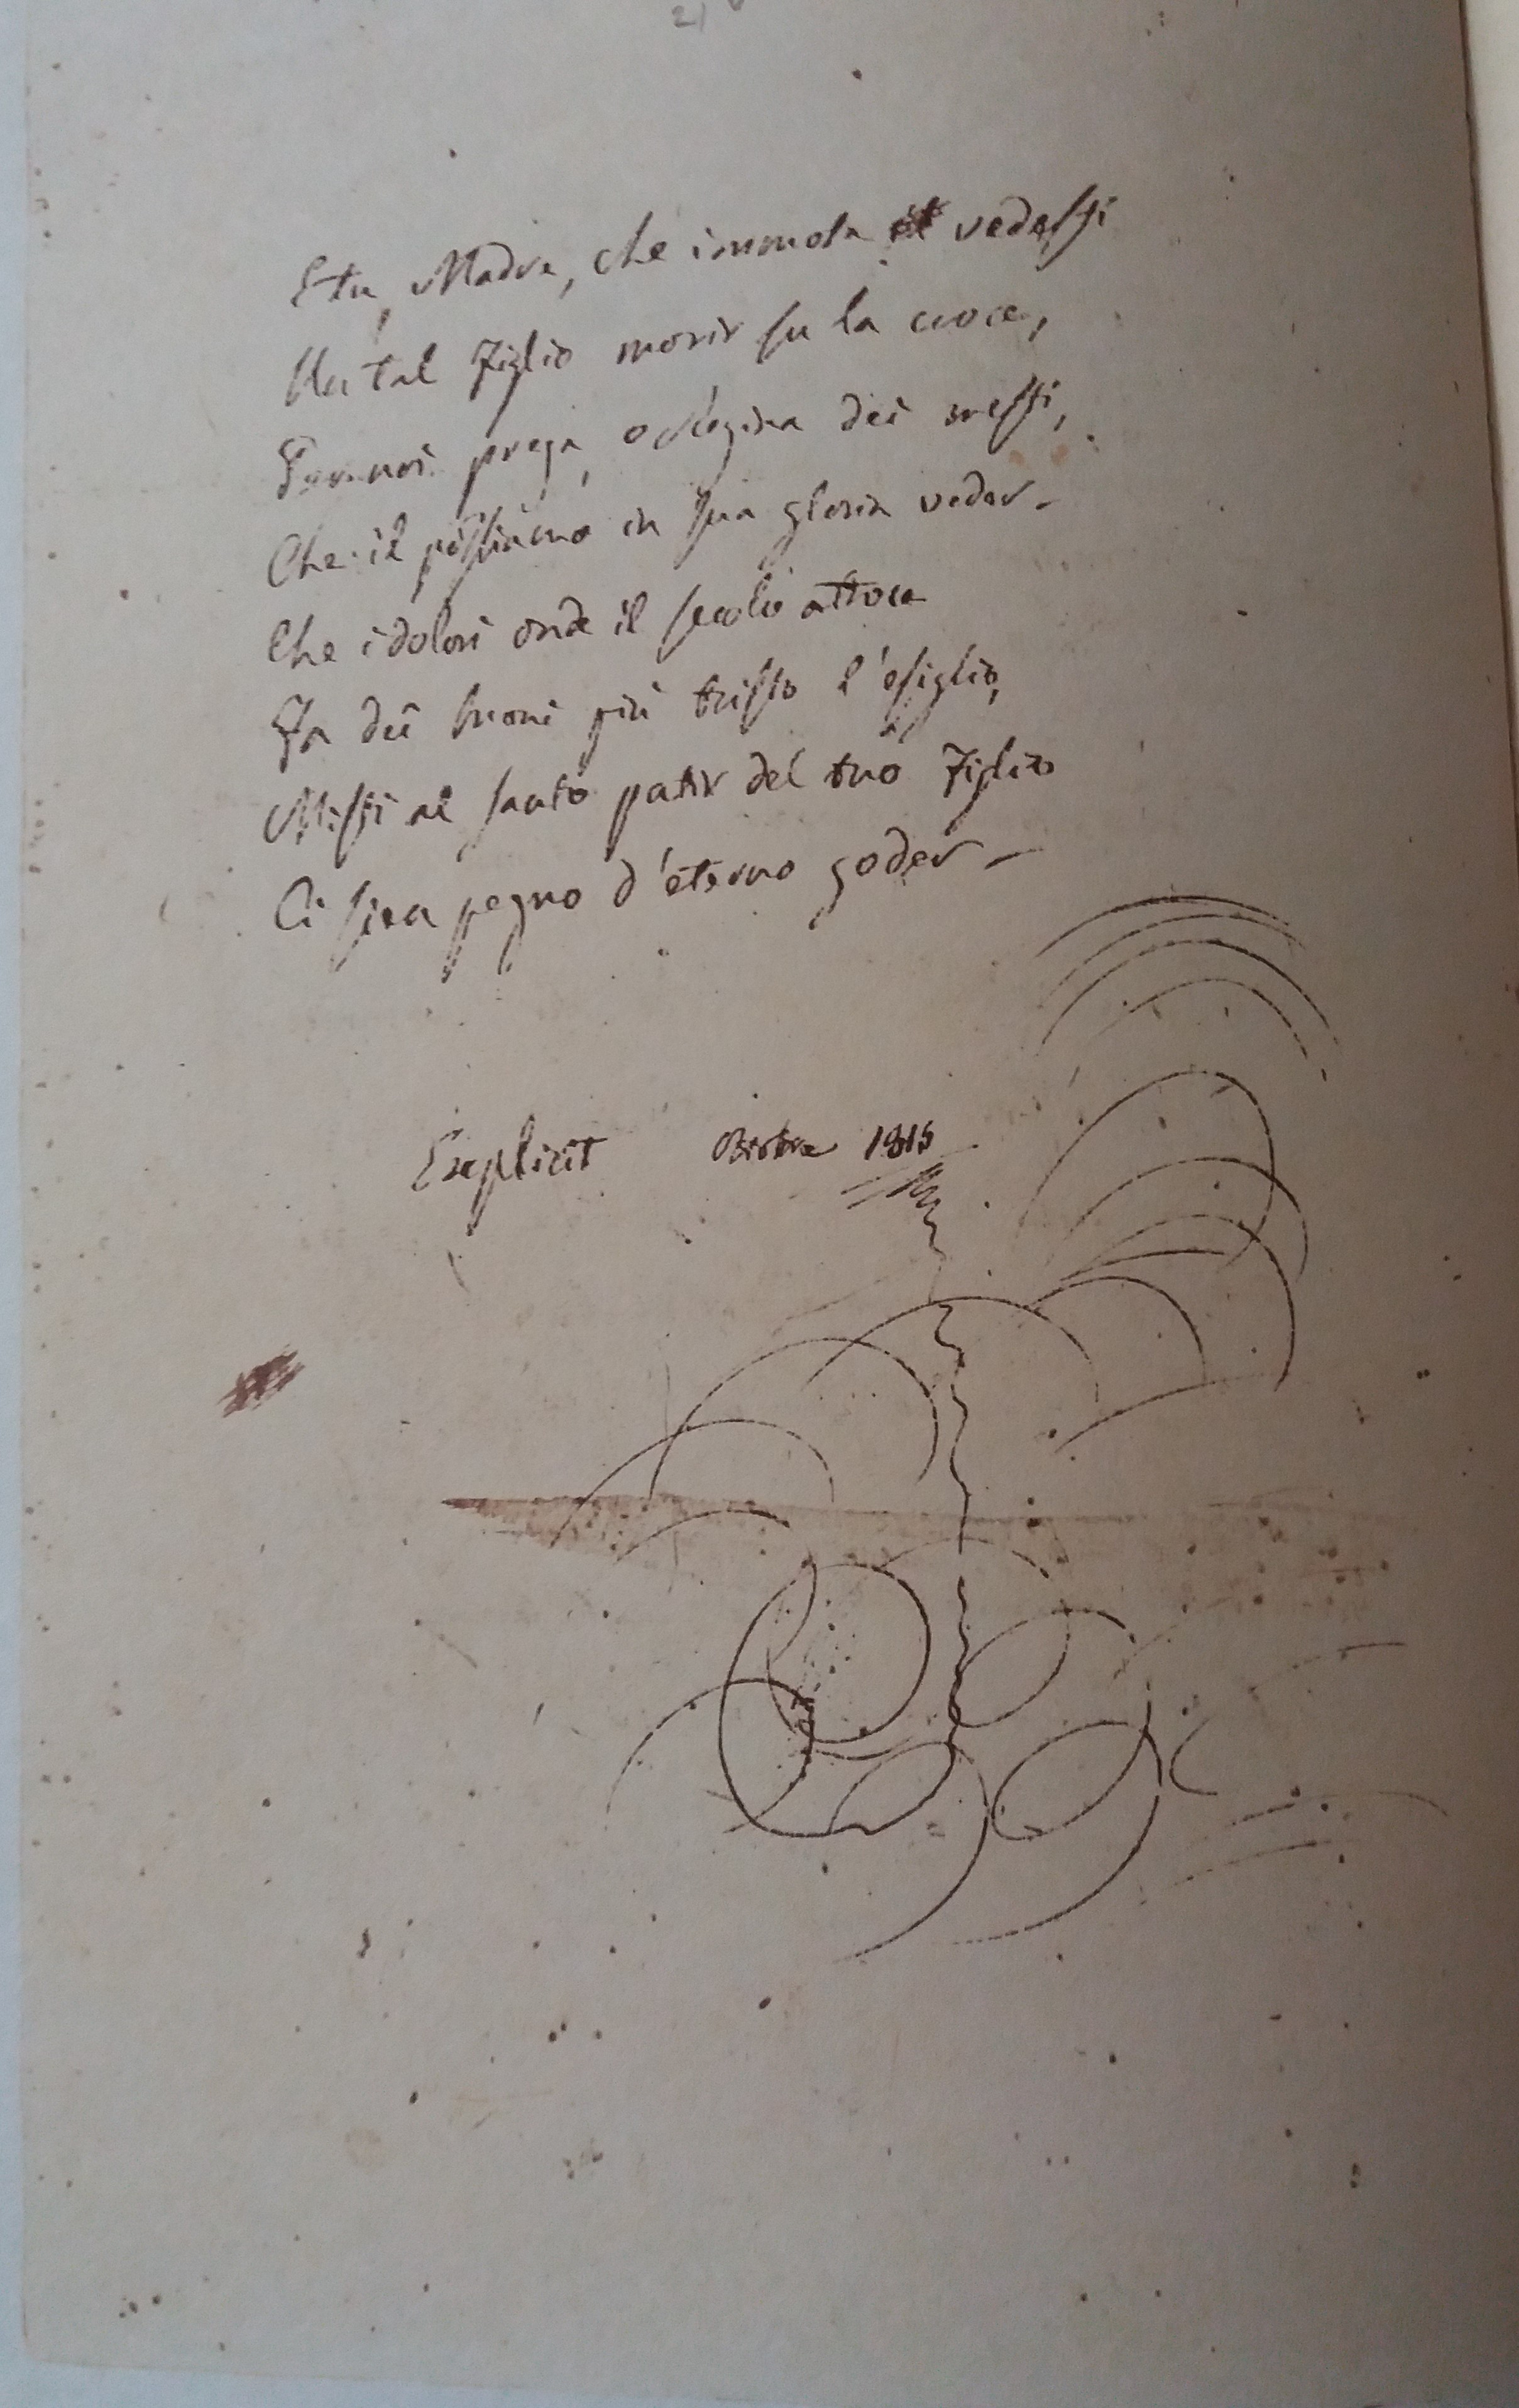 21
E tu, Madre, che immota vedesti
Un tal Figlio morir su la croce,
Per noi prega, o Regina dei mesti,
Che il possiamo in sua gloria veder -
Che i dolori onde il secolo atroce
Fa dei buoni più tristo l'esiglio,
Misti al santo patir del tuo Figlio
Ci sien pegno d'eterno goder -
Explicit Ottobre 1815